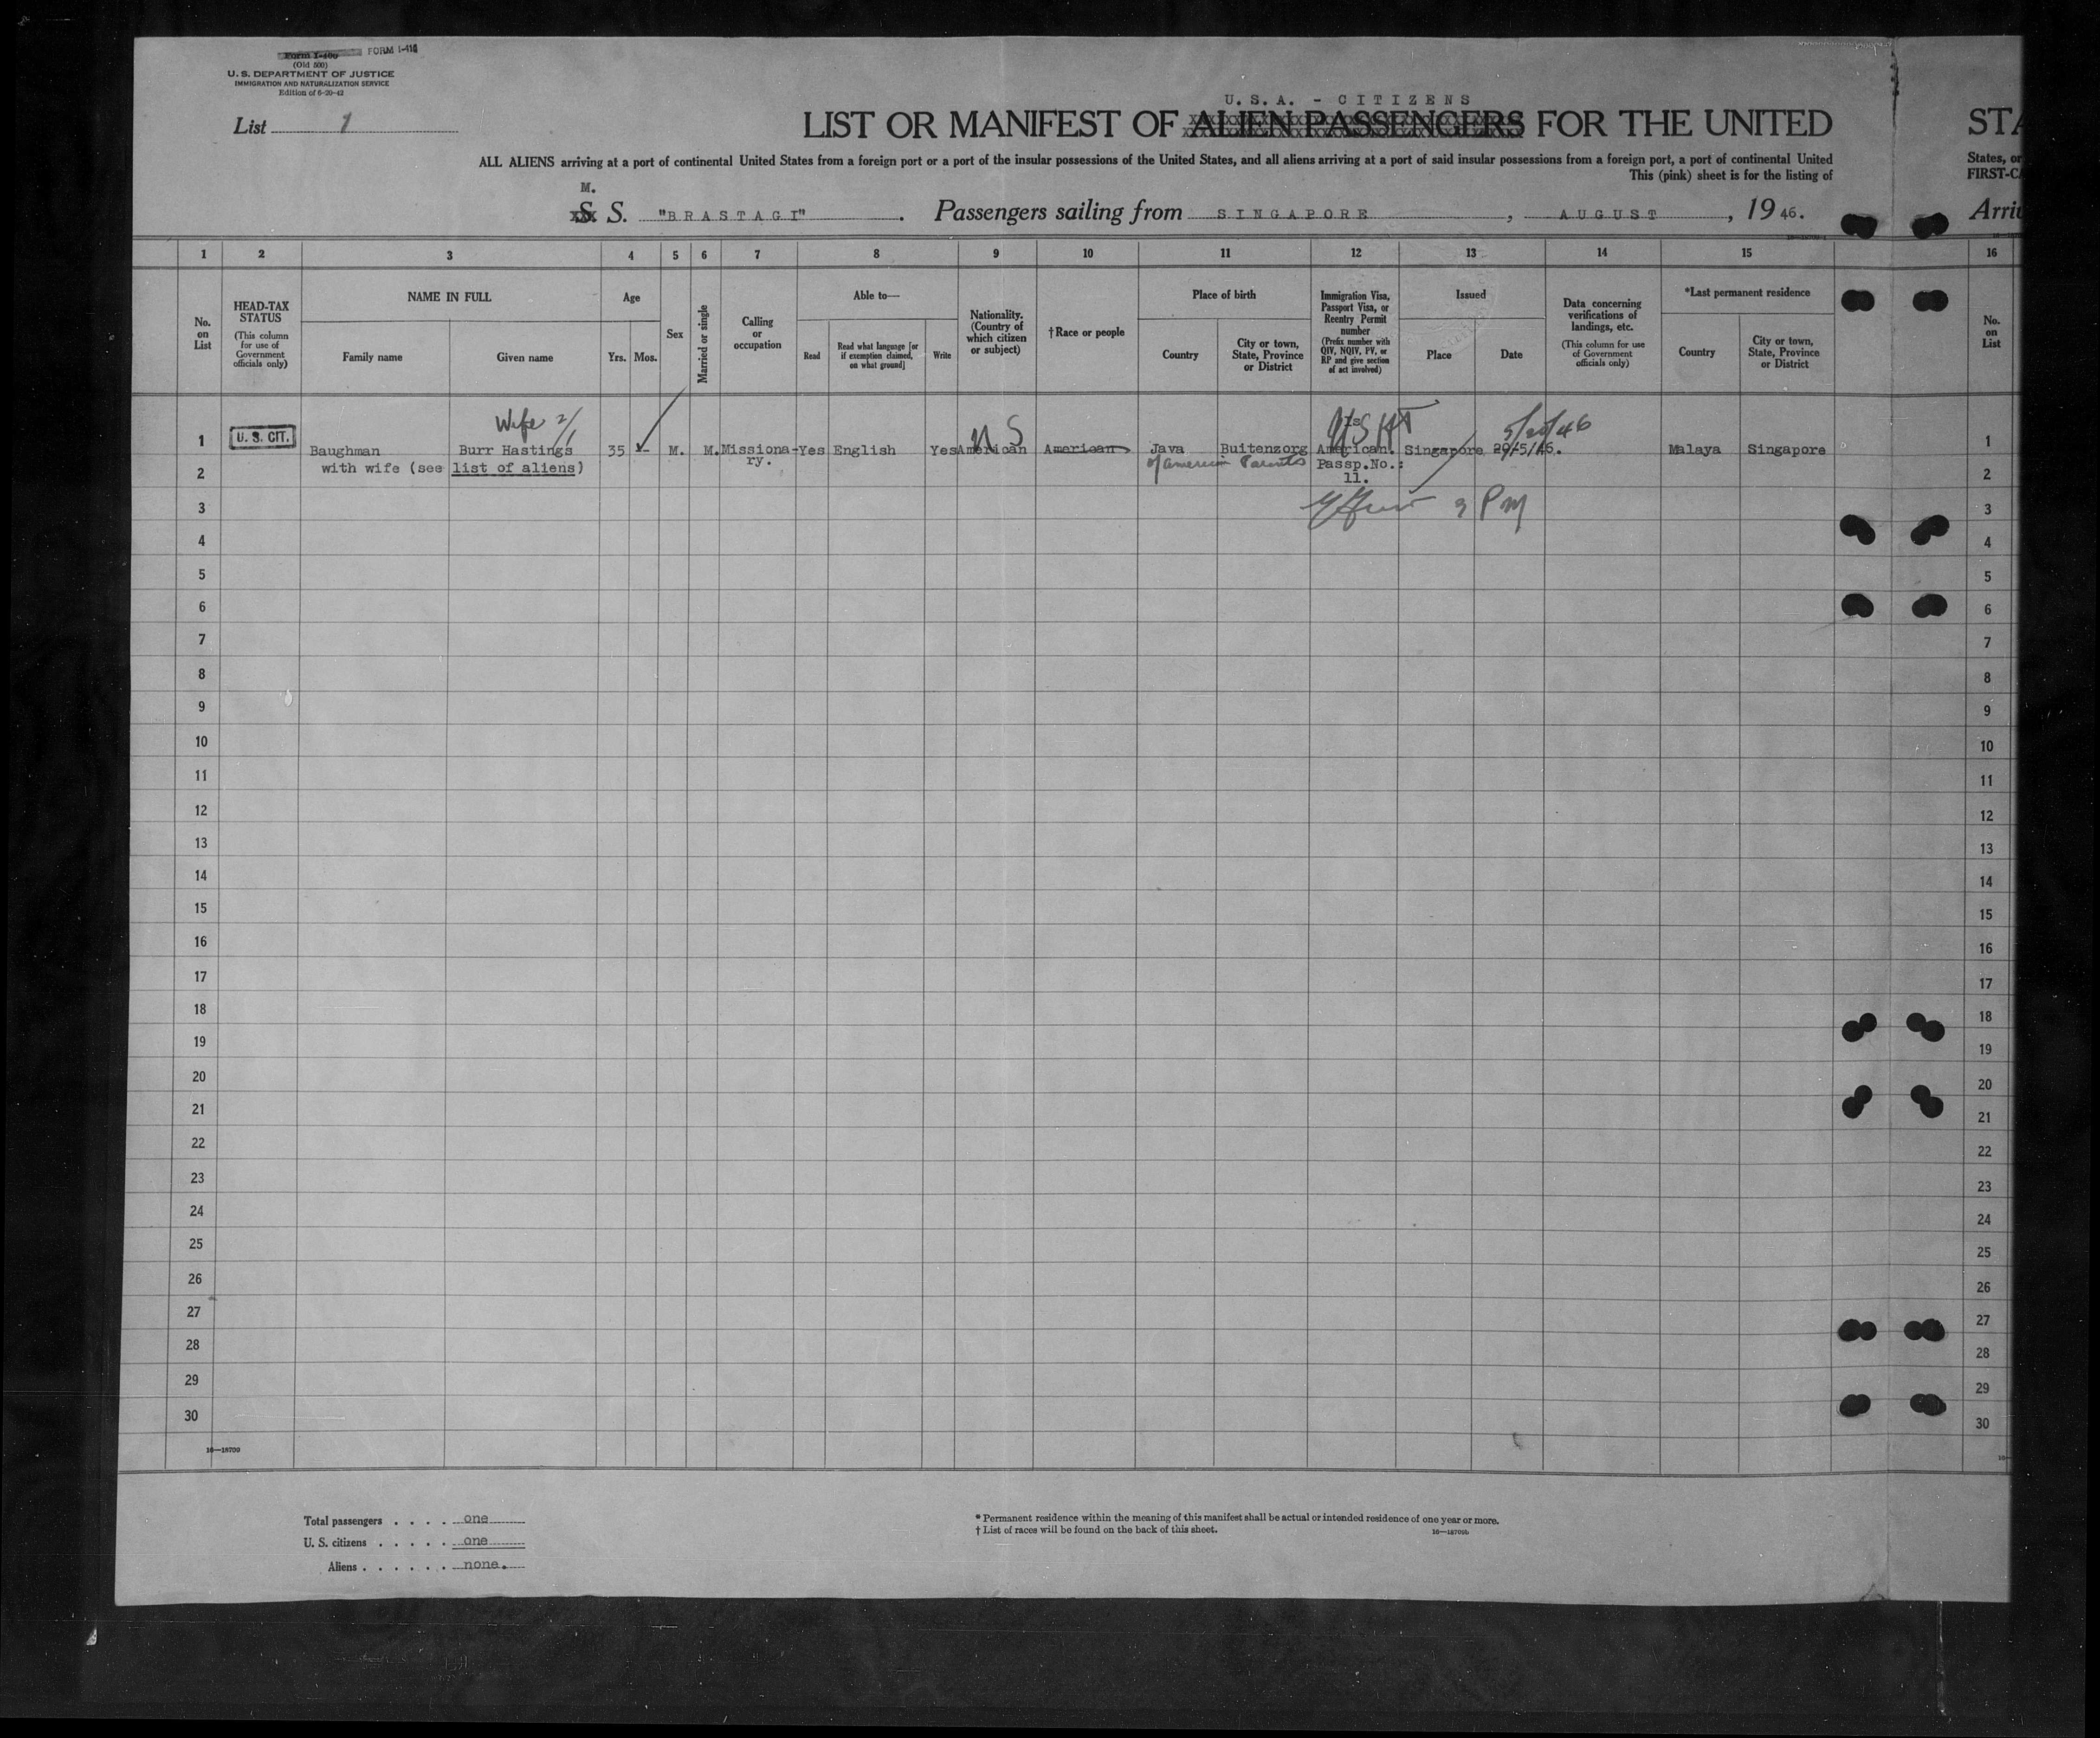 Form I-400 FORM I-415
(Old 500)
U. S. DEPARTMENT OF JUSTICE
IMMIGRATION AND NATURALIZATION SERVICE
Edition of 6-20-42
List 1
U.S.A. - CITIZENS
LIST OR MANIFEST OF ALIEN PASSENGERS FOR THE UNITED STA
ALL ALIENS arriving at a port of continental United States from a foreign port or a port of the insular possessions of the United States, and all aliens arriving at a port of said insular possessions from a foreign port, a port of continental United States, or
This (pink) sheet is for the listing of FIRST-CA
M.
S. S. "BRASTAGI". Passengers sailing from SINGAPORE, AUGUST, 1946. Arri
1 2 3 4 5 6 7 8 9 10 11 12 13 14 15 16
No. on List
HEAD-TAX STATUS (This column for use of Government officials only)
NAME IN FULL
Family name Given name
Age
Yrs. Mos.
Sex
Married or single
Calling or occupation
Able to—
Read Read what language [or if exemption claimed, on what ground] Write
Nationality. (Country of which citizen or subject)
†Race or people
Place of birth
Country City or town, State, Province or District
Immigration Visa, Passport Visa, or Reentry Permit number (Prefix number with QIV, NQIV, PV, or RP and give section of act involved)
Issued
Place Date
Data concerning verifications of landings, etc. (This column for use of Government officials only)
*Last permanent residence
Country City or town, State, Province or District
No. on List
Wife 2/1 US 5/20/46
1 U. S. CIT. Baughman Burr Hastings 35 - M. M. Missiona- Yes English Yes American American Java Buitenzorg American. Singapore 29/5/46. Malaya Singapore 1
ry. of American Parents
2 with wife (see list of aliens) Passp.No.: 2
11.
3 3 PM 3
4 4
5 5
6 6
7 7
8 8
9 9
10 10
11 11
12 12
13 13
14 14
15 15
16 16
17 17
18 18
19 19
20 20
21 21
22 22
23 23
24 24
25 25
26 26
27 27
28 28
29 29
30 30
16—18709
Total passengers . . . . one
U. S. citizens . . . . . one
Aliens . . . . . . none.
* Permanent residence within the meaning of this manifest shall be actual or intended residence of one year or more.
† List of races will be found on the back of this sheet. 16—18709b